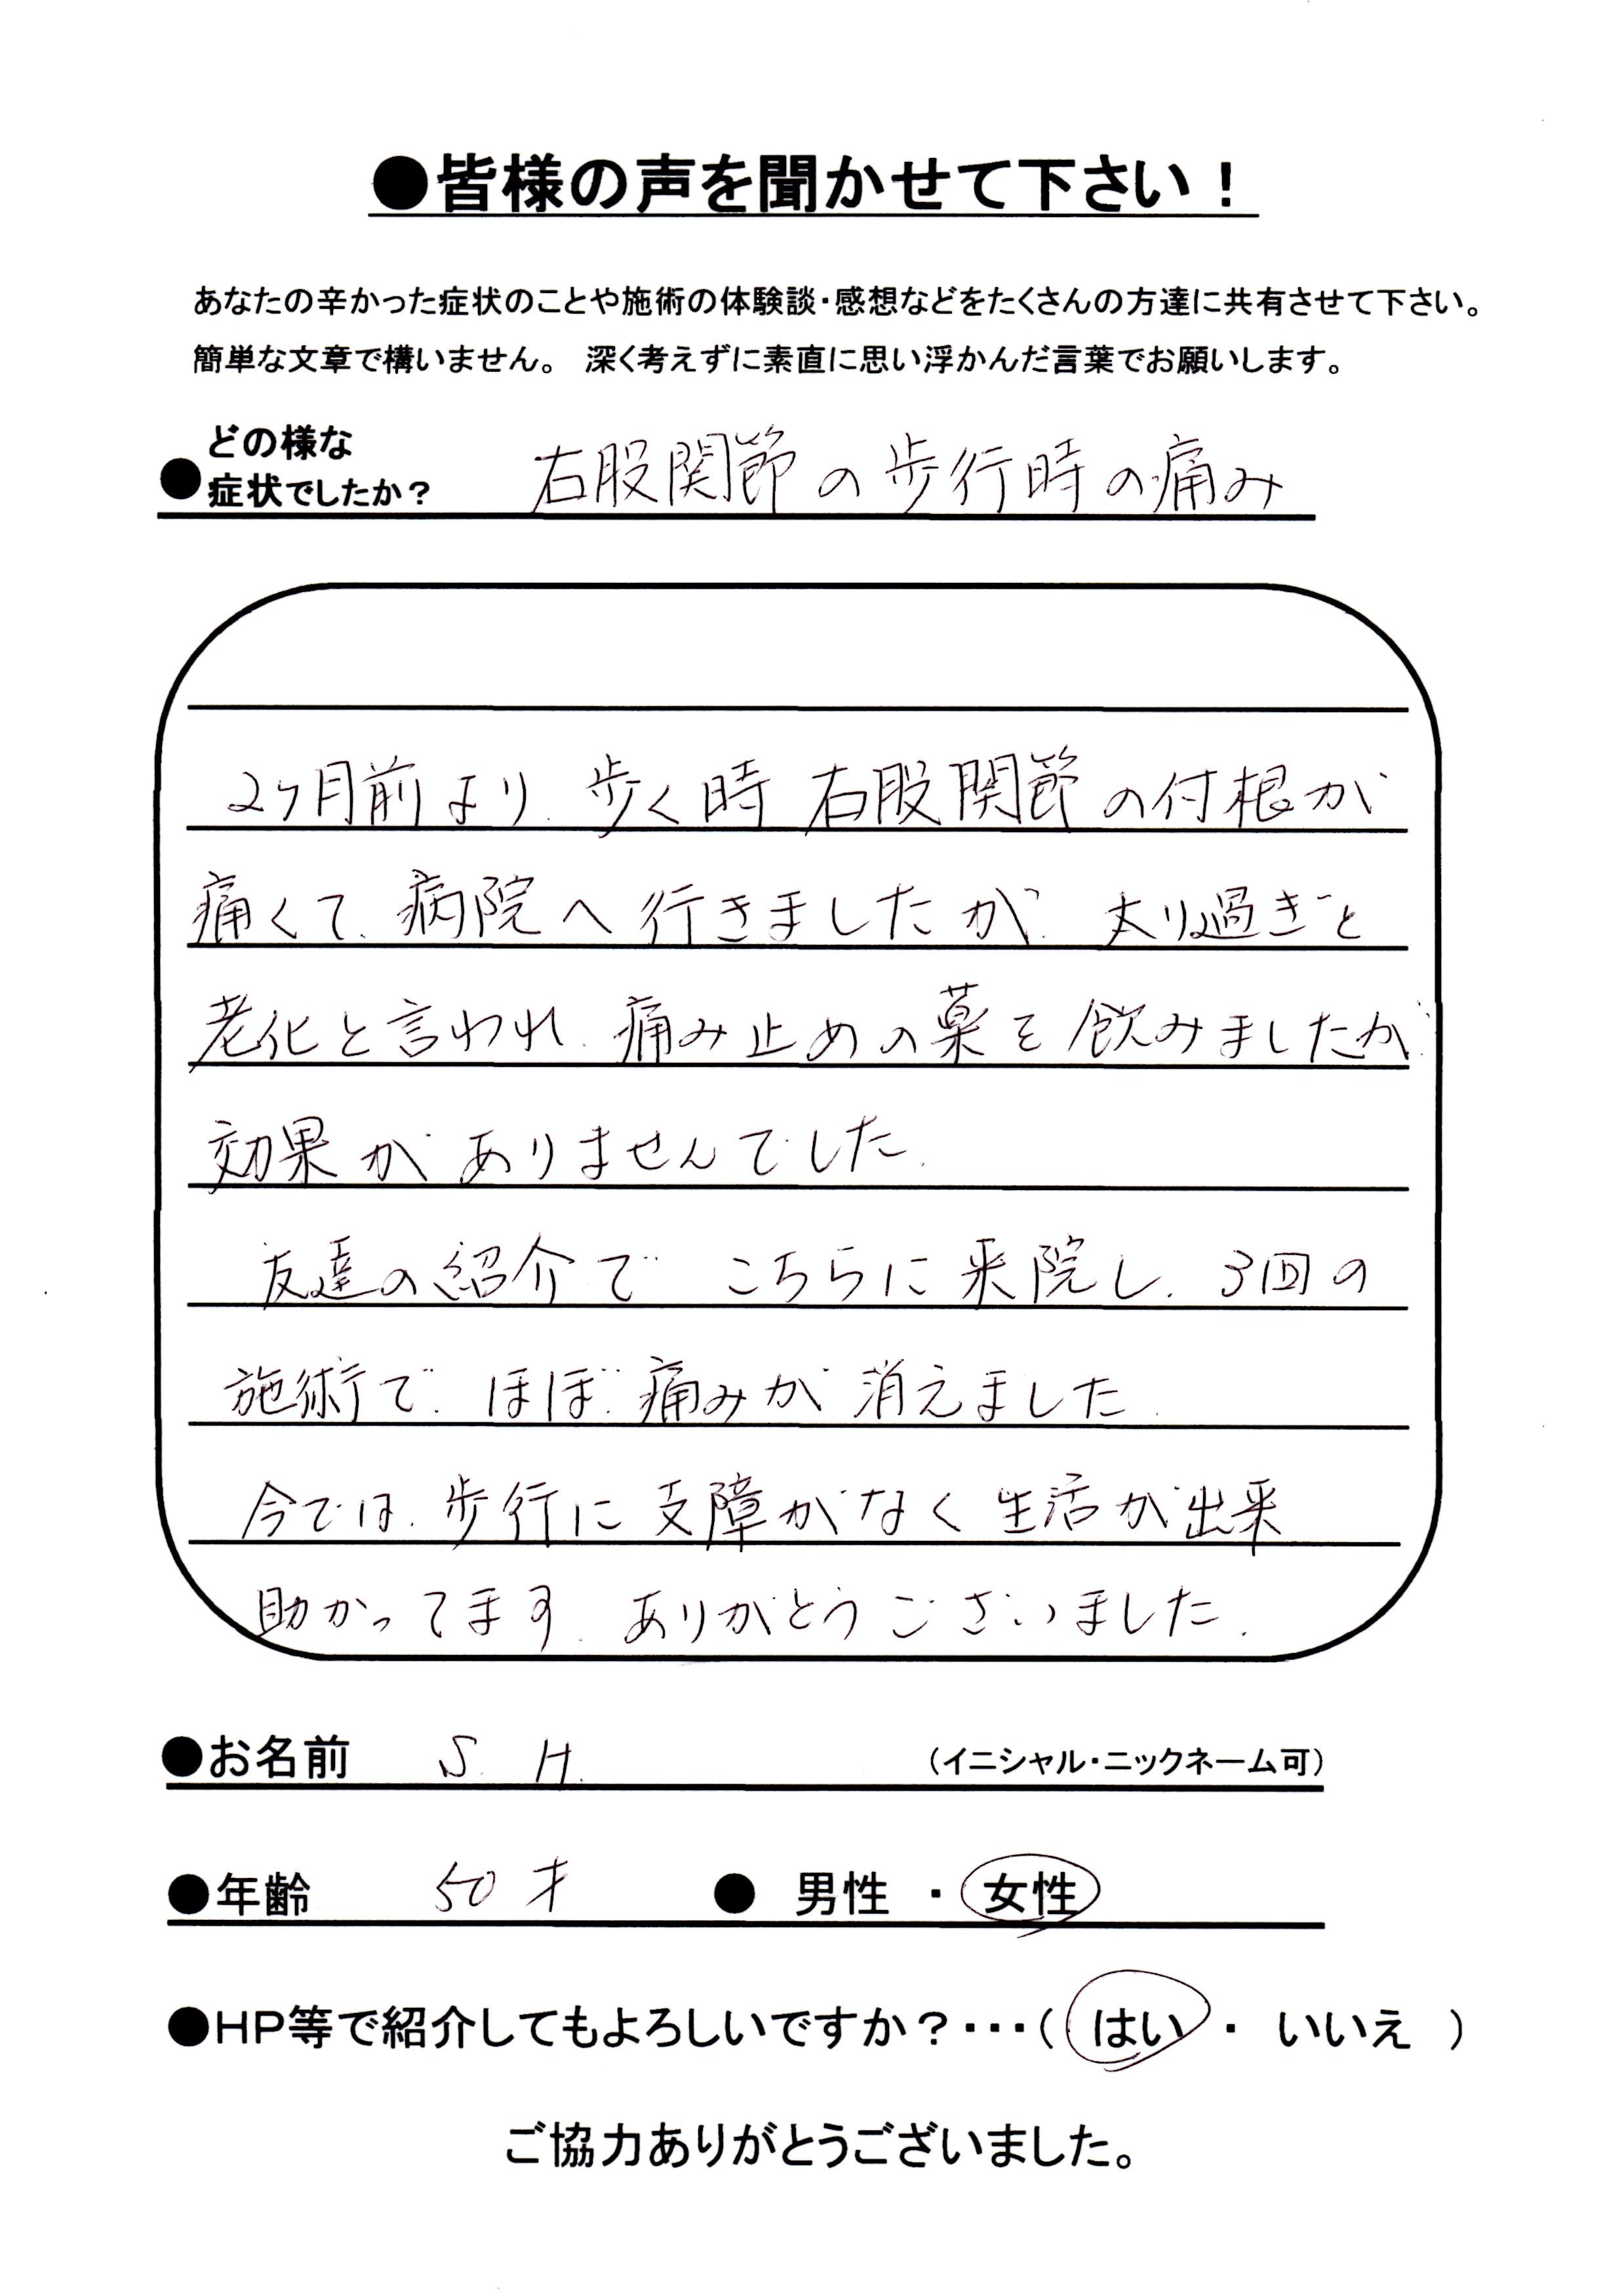 ●皆様の声を聞かせて下さい！
あなたの辛かった症状のことや施術の体験談・感想などをたくさんの方達に共有させて下さい。
簡単な文章で構いません。 深く考えずに素直に思い浮かんだ言葉でお願いします。
●どの様な
症状でしたか？ 右股関節の歩行時の痛み
2ヶ月前より、歩く時 右股関節の付根が
痛くて、病院へ行きましたが、太り過ぎと
老化と言われ、痛み止めの薬を飲みましたが、
効果がありませんでした。
友達の紹介で こちらに来院し、3回の
施術で、ほぼ、痛みが消えました。
今では、歩行に支障がなく生活が出来
助かってます。ありがとうございました。
●お名前 S. H. （イニシャル・ニックネーム可）
●年齢 50才 ● 男性 ・ 女性
●HP等で紹介してもよろしいですか？・・・（ はい ・ いいえ ）
ご協力ありがとうございました。